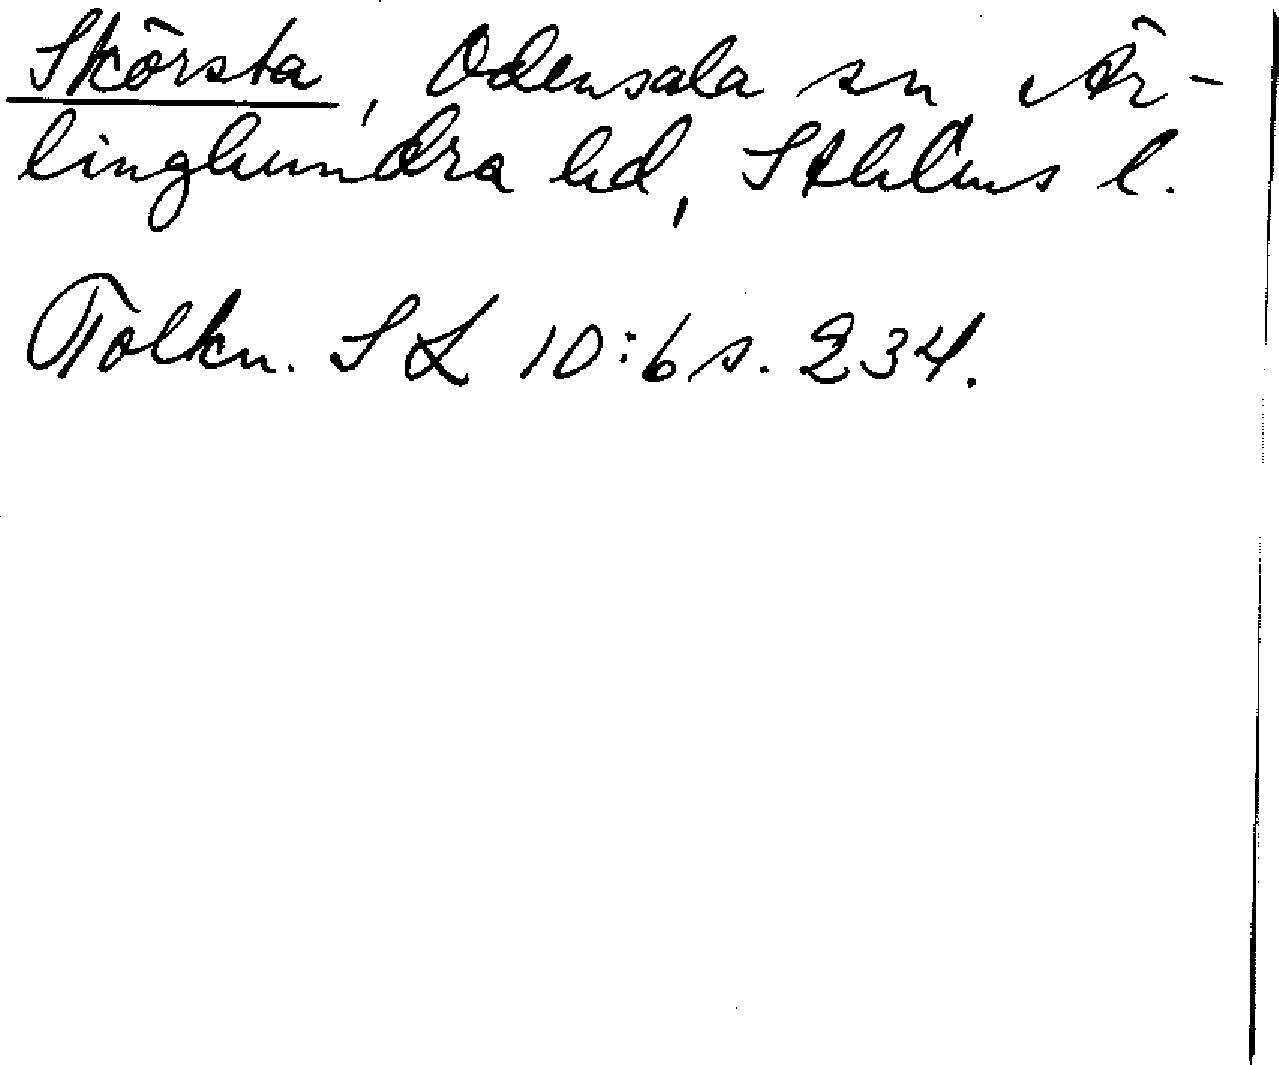 Skörsta, Odensala sn Är-
linghundra hd, Sthlms l.
Tolkn. SL 10:6 s. 234.